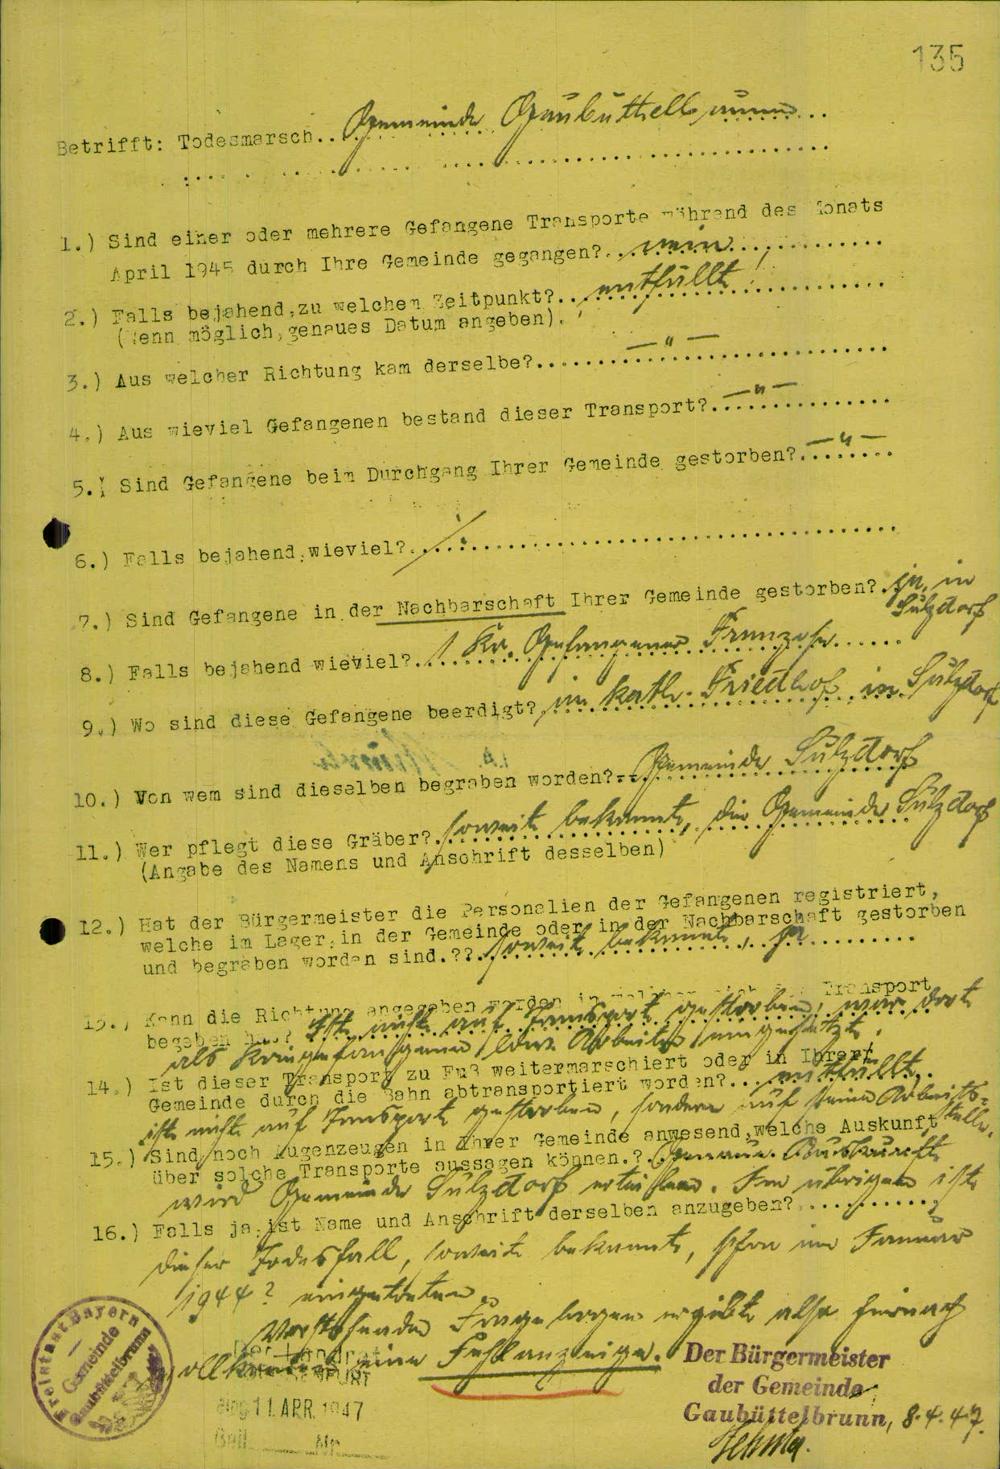 135
Betrifft: Todesmarsch.. Gemeinde Gaubüttelbrunn
1.) Sind einer oder mehrere Gefangene Transporte während des Monats
April 1945 durch Ihre Gemeinde gegangen?.. nein
2.) Falls bejahend, zu welchen Zeitpunkt?.. entfällt
(Wenn möglich, genaues Datum angeben).
3.) Aus welcher Richtung kam derselbe?.. — " —
4.) Aus wieviel Gefangenen bestand dieser Transport?.. — " —
5.) Sind Gefangene beim Durchgang Ihrer Gemeinde gestorben?.. — " —
6.) Falls bejahend, wieviel?.. /.
7.) Sind Gefangene in der Nachbarschaft Ihrer Gemeinde gestorben?. ja, in
Sulzdorf
8.) Falls bejahend wieviel?.. 1 Kr. Gefangener Franzose
9.) Wo sind diese Gefangene beerdigt? im kath. Friedhof in Sulzdorf
10.) Von wem sind dieselben begraben worden?.. Gemeinde Sulzdorf
11.) Wer pflegt diese Gräber?. soweit bekannt, die Gemeinde Sulzdorf
(Angabe des Namens und Anschrift desselben)
12.) Hat der Bürgermeister die Personalien der Gefangenen registriert,
welche im Lager, in der Gemeinde oder in der Nachbarschaft gestorben
und begraben worden sind.?? soweit bekannt, ja
13.) Kann die Richtung angegeben werden in welcher sich der Transport
begeben hat? ist nicht auf Transport gestorben, war dort
als Kriegsgefangener bzw. Arbeiter eingesetzt.
14.) Ist dieser Transport zu Fuß weitermarschiert oder in Ihrer
Gemeinde durch die Bahn abtransportiert worden?.. entfällt.
ist nicht auf Transport gestorben, sondern auf seiner Arbeits-
stelle.
15.) Sind noch Augenzeugen in Ihrer Gemeinde anwesend, welche Auskunft
über solche Transporte aussagen können.?. Genaue Auskunft
wird Gemeinde Sulzdorf erteilen. Im übrigen ist
16.) Falls ja, ist Name und Anschrift derselben anzugeben?
dieser Todesfall, soweit bekannt, schon im Januar
1944? eingetreten.
Vorstehender Fragebogen ergibt also hiernach
eine Fehlanzeige.
Freistaat Bayern
Gemeinde
Gaubüttelbrunn
Der Landrat
11. APR. 1947
Beil. Nr.
Der Bürgermeister
der Gemeinde
Gaubüttelbrunn, 8.4.47.